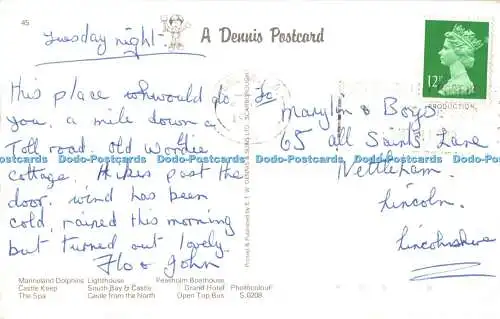 45
Tuesday night.
A Dennis Postcard
This place would do
you, a mile down a
Toll road. Old
cottage. Hikes past the
door. wind has been
cold, rained this morning
but turned out lovely.
Flo & John
To
Marylin & Boys.
65 all Saints Lane
Nettleham.
Lincoln.
Lincolnshire
12P
PRODUCTION
Dodo-Postcards Dodo-Postcards Dodo-Postcards Dodo-Postcards Dodo-Postcards Dodo-Postcards
Printed & Published by E. T. W. DENNIS & SONS LTD. SCARBOROUGH
Marineland Dolphins Lighthouse Peasholm Boathouse
Castle Keep South Bay & Castle Grand Hotel Photocolour
The Spa Castle from the North Open Top Bus S.0208